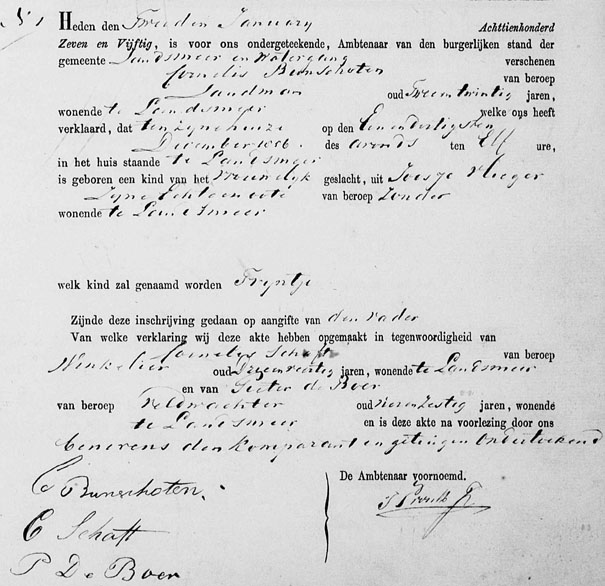 N° 1
Heden den Tweeden January Achttienhonderd
Zeven en Vijftig, is voor ons ondergeteekende, Ambtenaar van den burgerlijken stand der
gemeente Landsmeer en Watergang verschenen
Cornelis Bunschoten van beroep
Landman oud Tweentwintig jaren,
wonende te Landsmeer welke ons heeft
verklaard, dat ten zynenhuize op den Eenendertigsten
December 1856. des avonds ten Elf ure,
in het huis staande te Landsmeer
is geboren een kind van het Vrouwelyk geslacht, uit Jeesje Vlieger
Zyne Echtgenoote van beroep Zonder
wonende te Landsmeer
welk kind zal genaamd worden Tryntje
Zijnde deze inschrijving gedaan op aangifte van den vader
Van welke verklaring wij deze akte hebben opgemaakt in tegenwoordigheid van
Cornelys Schaft van beroep
Winkelier oud jaren, wonende te Landsmeer
en van Pieter de Boer
van beroep Veldwachter oud Vierenzestig jaren, wonende
te Landsmeer en is deze akte na voorlezing door ons
benevens den Komparant en getuigen Onderteekend
De Ambtenaar voornoemd.
C Bunschoten.
C Schaft
P De Boer